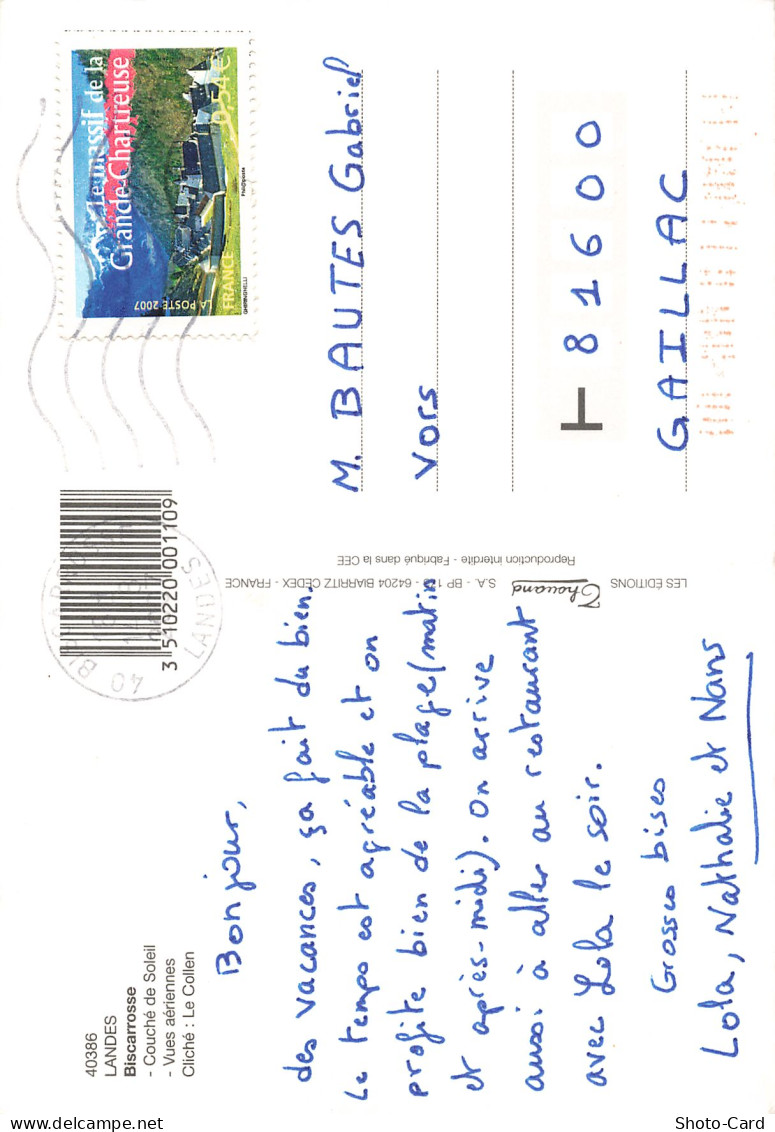 40386
LANDES
Biscarrosse
- Couché de Soleil
- Vues aériennes
Cliché : Le Collen
Bonjour,
des vacances, ça fait du bien.
Le temps est agréable et on
profite bien de la plage (matin
et après-midi). On arrive
aussi à aller au restaurant
avec Lola le soir.
Grosses bises
Lola, Nathalie et Nans
3 510220 001109
LANDES
LES ÉDITIONS Thouand S.A. - BP 1 - 64204 BIARRITZ CEDEX - FRANCE
Reproduction interdite - Fabriqué dans la CEE
Le massif de la
Grande-Chartreuse
0,54€
LA POSTE 2007
FRANCE
Phil@poste
M. BAUTES Gabriel
Vors
81600
GAILLAC
Photo-Card